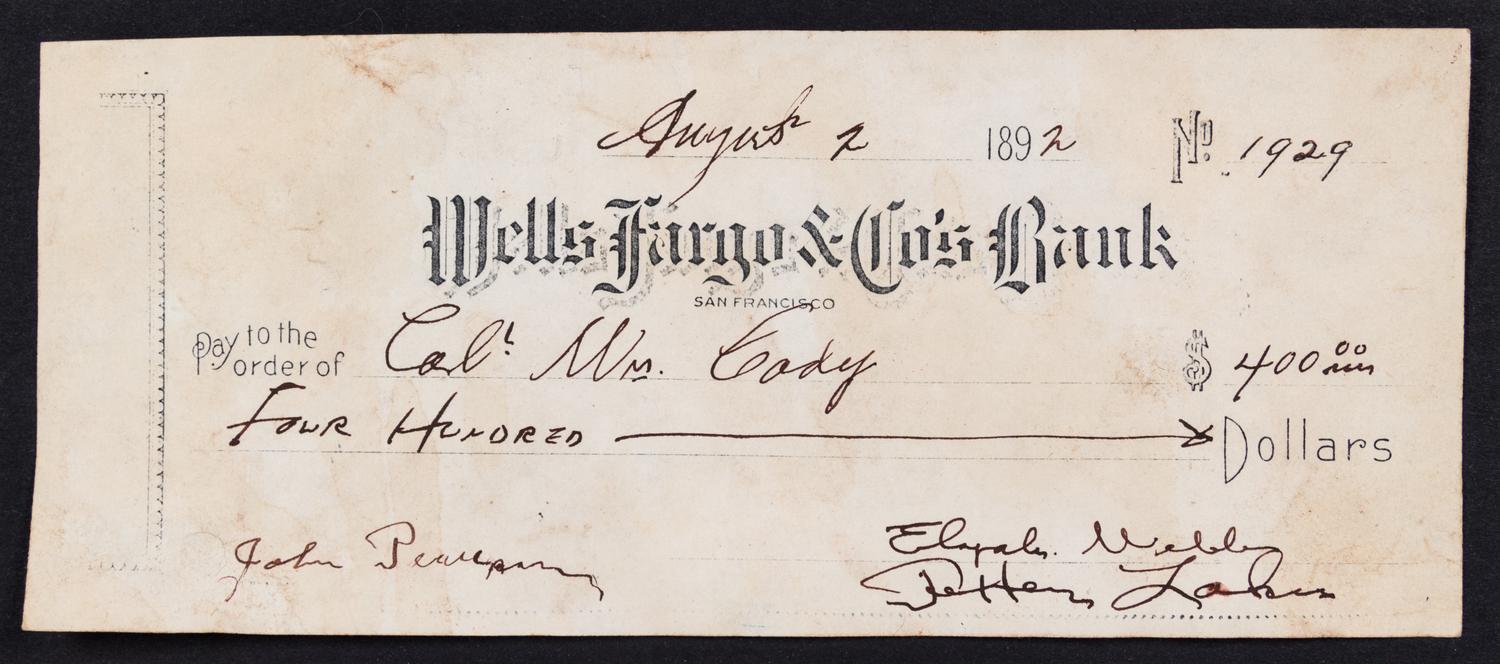 August 2 1892 No. 1929
Wells Fargo & Co's Bank
SAN FRANCISCO
Pay to the order of Col. Wm. Cody $ 400 00
FOUR HUNDRED Dollars
John